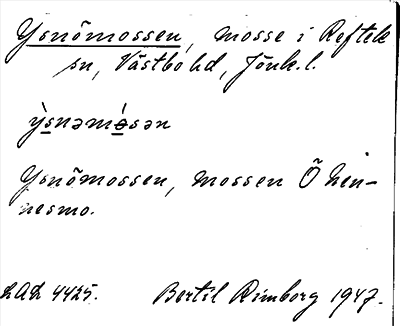 Ysnömossen, mosse i Reftele
sn, Västbo hd, Jönk. l.
ỳsnəmósən
Ysnömossen, mossen Ö Lin-
nesmo.
LAL 4425. Bertil Rimborg 1947.